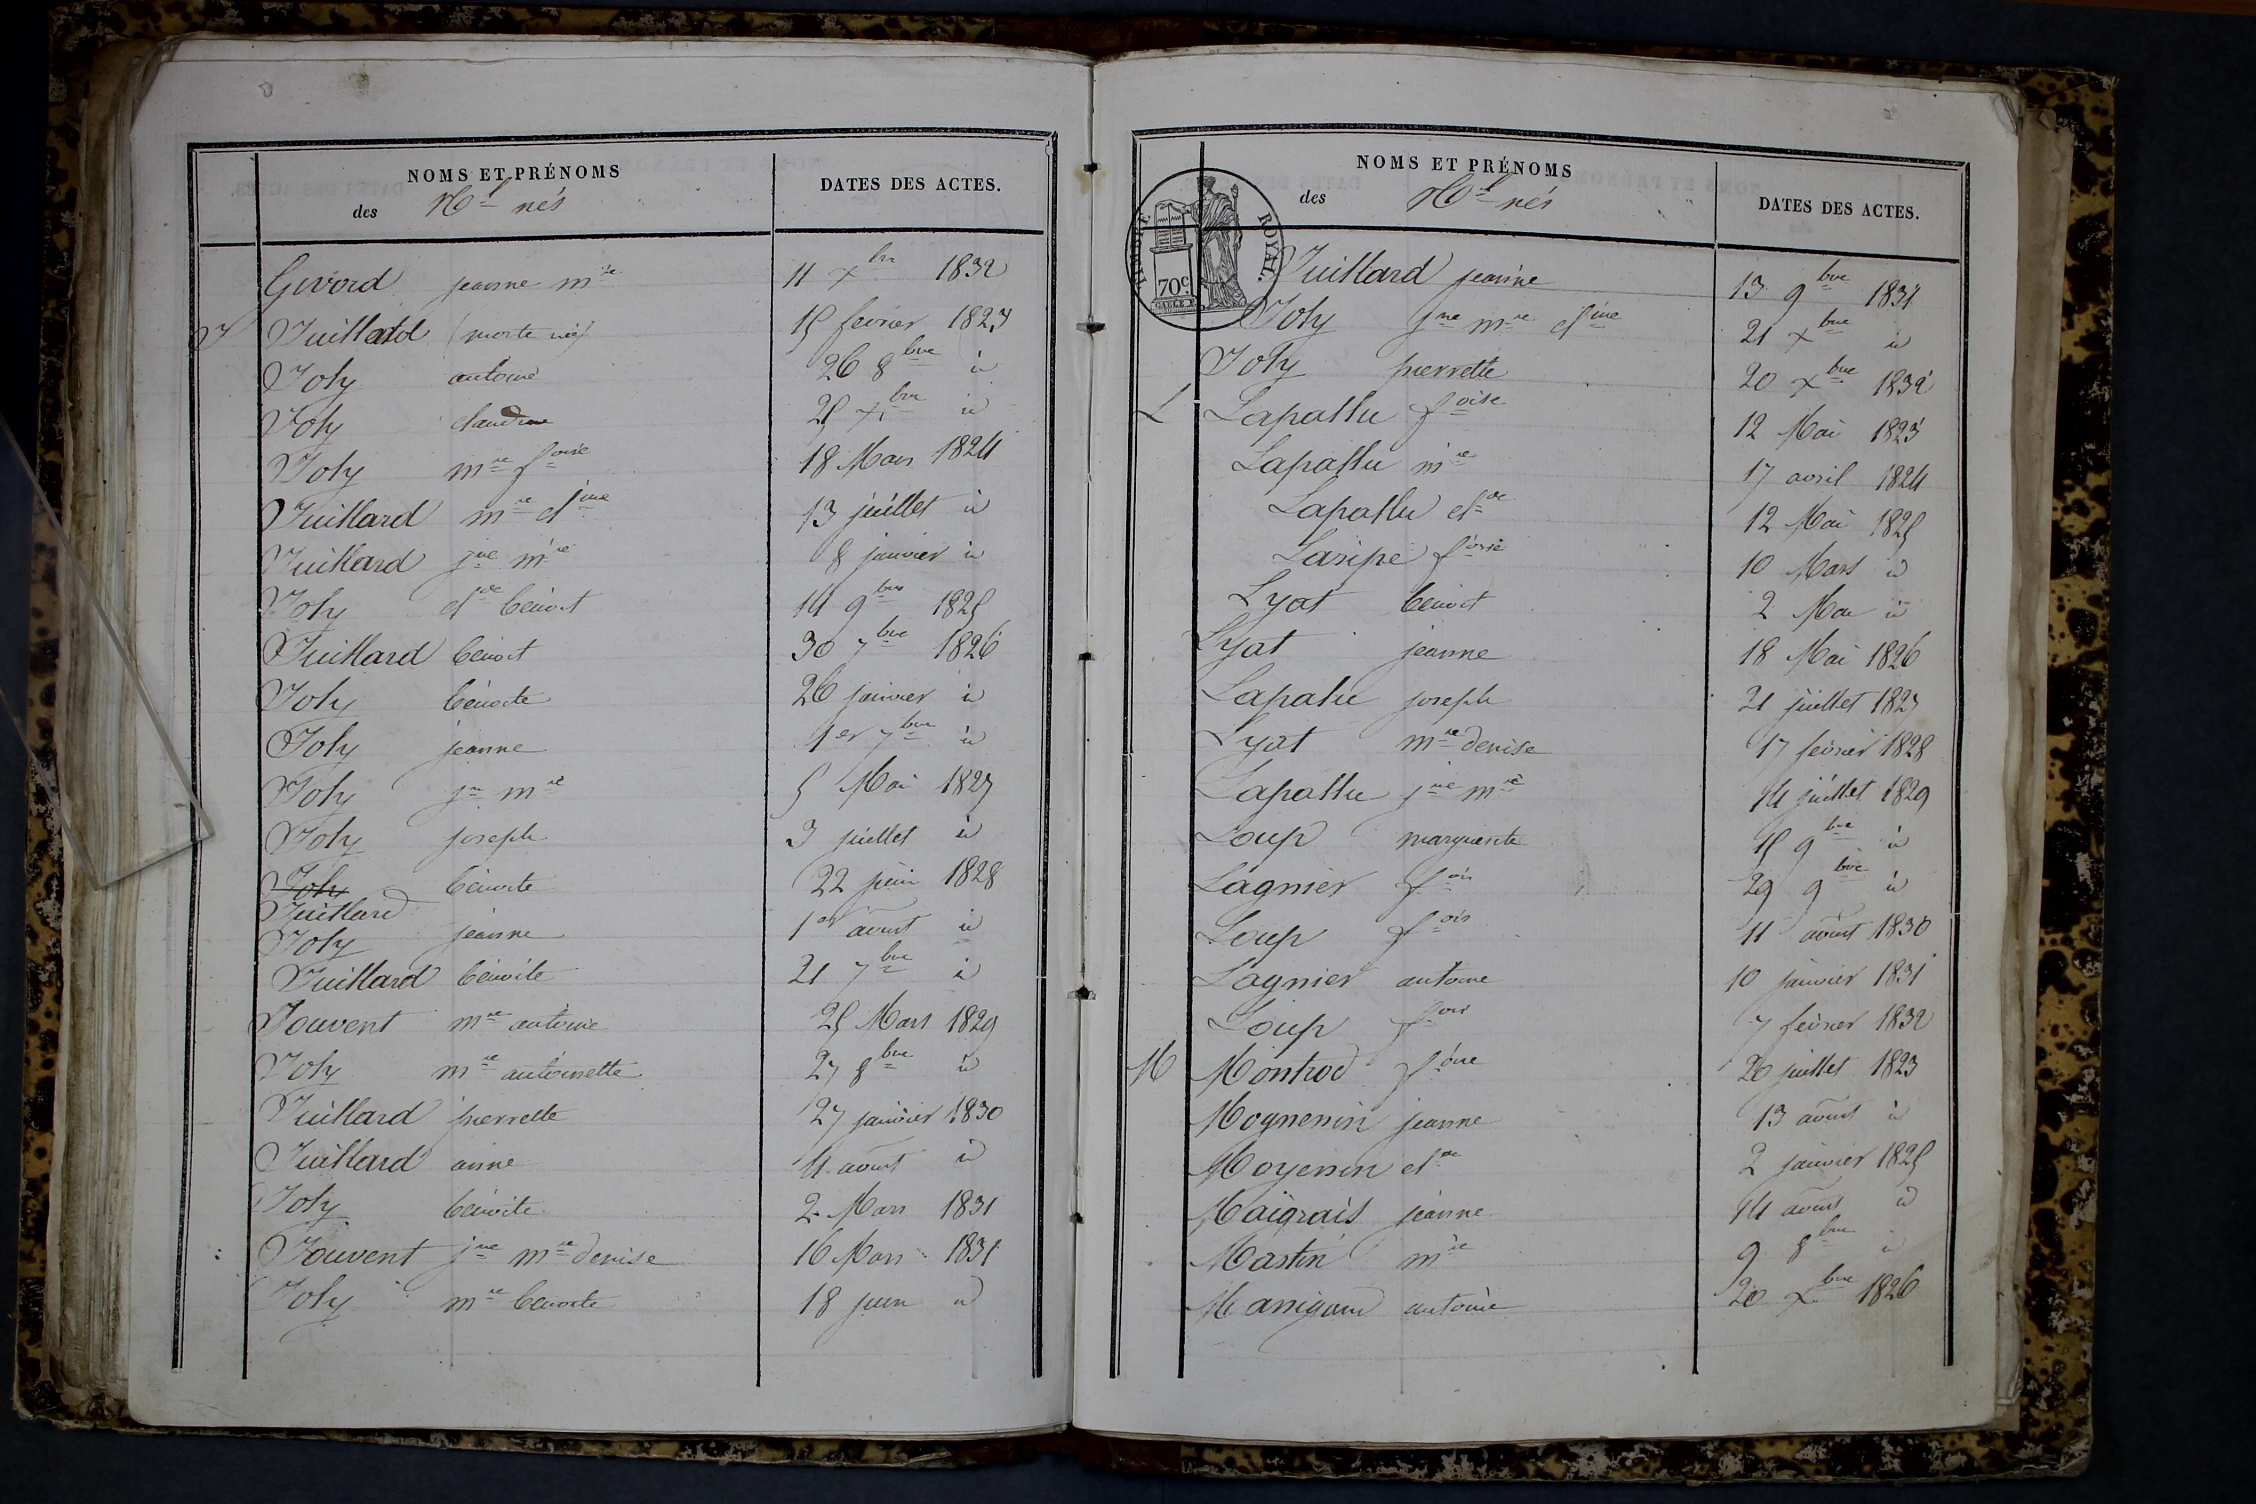 NOMS ET PRÉNOMS
DATES DES ACTES.
des Nls nés
Givord jeanne mie 11 xbre 1832
J Juillard (morte née) 15 février 1823
Joly antoine 26 8bre id
Joly claudine 25 xbre id
Joly mie foise 18 Mars 1824
Juillard mie cline 13 juillet id
Juillard jne mie 8 janvier id
Joly clde benoit 14 9bre 1825
Juillard benoit 30 7bre 1826
Joly benoite 26 janvier id
Joly jeanne 1er 7bre id
Joly jne mie 5 Mai 1827
Joly joseph 3 juillet id
Joly benoite 22 juin 1828
Juillard
Joly jeanne 1er aout id
Juillard benoite 21 7bre id
Jouvent mie antoine 25 Mars 1829
Joly mie antoinette 27 8bre id
Juillard pierrette 27 janvier 1830
Juillard anne 4 aout id
Joly benoite 2 Mars 1831
Jouvent jne mie denise 16 Mars 1831
Joly mie benoite 18 juin id
NOMS ET PRÉNOMS
DATES DES ACTES.
des Nls nés
TIMBRE ROYAL.
70c.
Juillard jeanne 13 9bre 1831
Joly jne mie cline 21 xbre id
Joly pierrette 20 xbre 1832
L Lapallu foise 12 Mai 1823
Lapallu mie 17 avril 1824
Lapallu clde 12 Mai 1825
Laripe foise 10 Mars id
Lyat benoit 2 Mai id
Lyat jeanne 18 Mai 1826
Lapalu joseph 21 juillet 1827
Lyat mie denise 17 février 1828
Lapallu jne mie 14 juillet 1829
Loup marguerite 15 9bre id
Lagnier fois 29 9bre id
Loup fois 11 aout 1830
Lagnier antoine 10 janvier 1831
Loup fois 7 février 1832
M Montrod foise 20 juillet 1823
Mognenin jeanne 13 aout id
Moyenin clde 2 janvier 1825
Maigrais jeanne 14 aout id
Martin mie 9 8bre id
Manigand antoine 20 xbre 1826